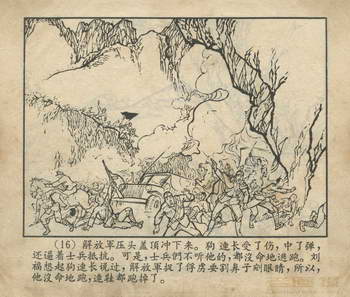 (16) 解放軍压头盖頂冲下来。狗連长受了伤，中了弹，
还逼着士兵抵抗。可是，士兵們不听他的，都沒命地逃跑。刘
福想起狗連长說过，解放軍捉了俘虏要割鼻子剜眼睛，所以，
他沒命地跑，連鞋都跑掉了。